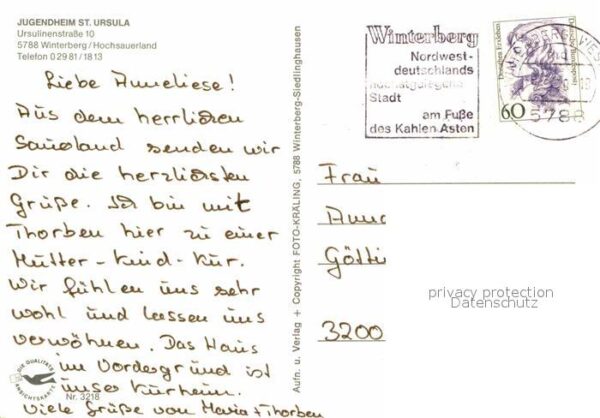 JUGENDHEIM ST. URSULA
Ursulinenstraße 10
5788 Winterberg/Hochsauerland
Telefon 0 29 81 / 18 13
Liebe Anneliese!
Aus dem herrlichen
Sauerland senden wir
Dir die herzlichsten
Grüße. Ich bin mit
Thorben hier zu einer
Mutter-Kind-Kur.
Wir fühlen uns sehr
wohl und lassen uns
verwöhnen. Das Haus
im Vordergrund ist
unser Kurheim.
Viele Grüße von Maria + Thorben
DIE QUALITÄTS
ANSICHTSKARTE
Nr. 3218
Aufn. u. Verlag + Copyright FOTO-KRÄLING, 5788 Winterberg-Siedlinghausen
Winterberg
Nordwest-
deutschlands
höchstgelegene
Stadt
am Fuße
des Kahlen Asten
60
5788
Frau
Anne
Götti
3200
privacy protection
Datenschutz